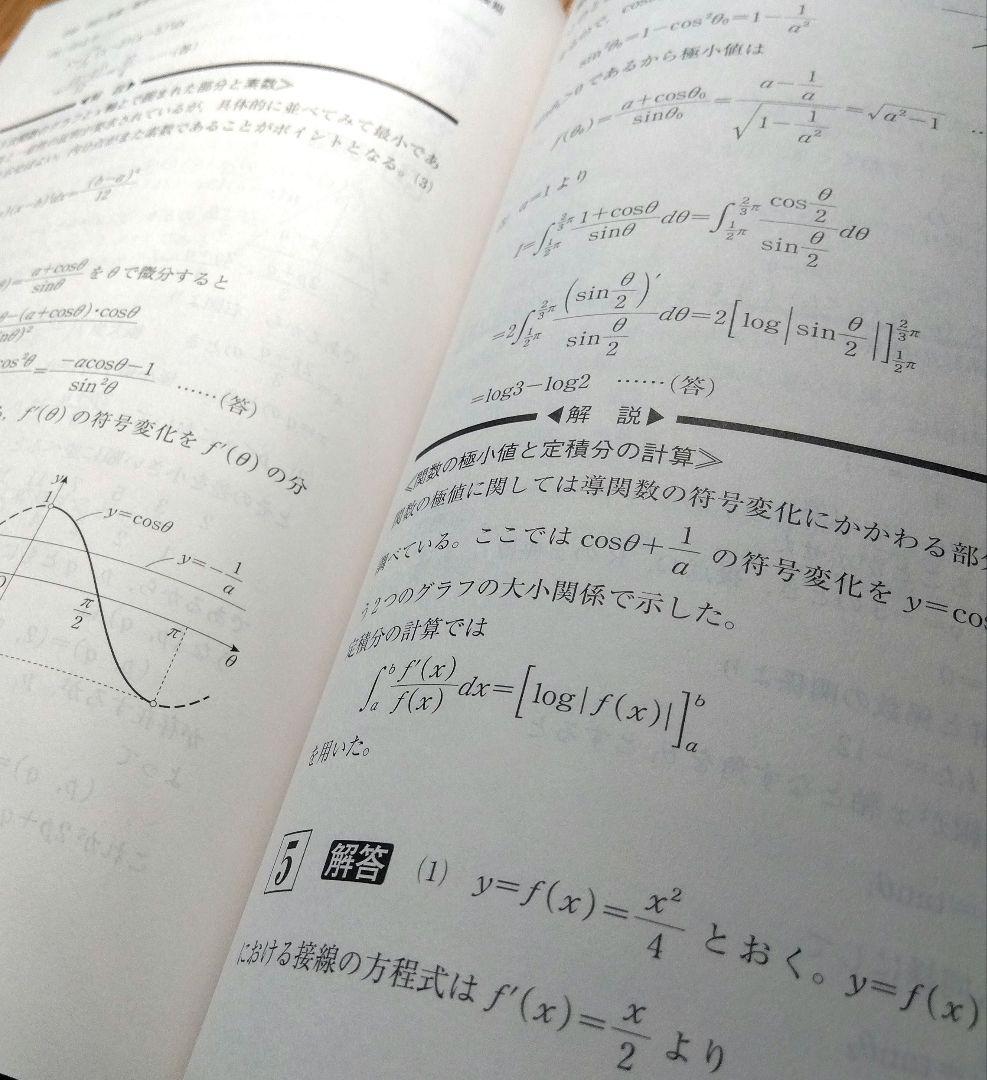 ◀解 説▶
軸とで囲まれた部分と素数≫
されているが，具体的に並べてみて最小であ
また素数であることがポイントとなる。(3)
(x−b)dx=(b−a)³/12
)=(a+cosθ)/sinθ をθで微分すると
θ−(a+cosθ)·cosθ
inθ)²
cos²θ=(−acosθ−1)/sin²θ ……(答)
f′(θ) の符号変化を f′(θ) の分
y
1
y=cosθ
y=−1/a
π/2
π
θ
sin²θ₀=1−cos²θ₀=1−1/a²
>0 であるから極小値は
f(θ₀)=(a+cosθ₀)/sinθ₀=(a−1/a)/√(1−1/a²)=√(a²−1) …
a=1 より
I=∫_{½π}^{⅔π} (1+cosθ)/sinθ dθ=∫_{½π}^{⅔π} (cos θ/2)/(sin θ/2) dθ
=2∫_{½π}^{⅔π} (sin θ/2)′/(sin θ/2) dθ=2[log|sin θ/2|]_{½π}^{⅔π}
=log3−log2 ……(答)
◀解 説▶
≪関数の極小値と定積分の計算≫
関数の極値に関しては導関数の符号変化にかかわる部分
調べている。ここでは cosθ+1/a の符号変化を y=cos
う2つのグラフの大小関係で示した。
定積分の計算では
∫_a^b f′(x)/f(x) dx=[log|f(x)|]_a^b
を用いた。
5 解答 (1) y=f(x)=x²/4 とおく。y=f(x)
における接線の方程式は f′(x)=x/2 より